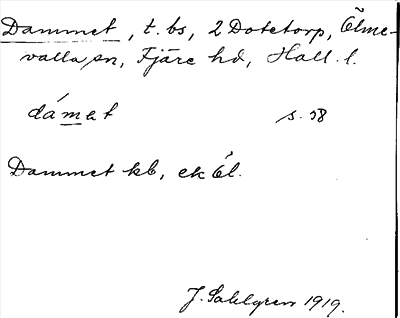 Dammet, t. bs, 2 Dotetorp, Ölme-
valla sn, Fjäre hd, Hall. l.
dámet s. 58
Dammet kb, ek Öl.
J. Sahlgren 1919.